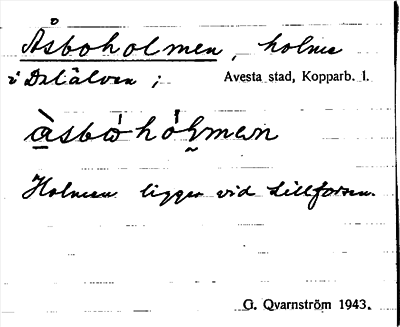 Åsboholmen, holme
i Dalälven;
Avesta stad, Kopparb. l.
àsbòhó̀lmen
Holmen ligger vid Lillforsen.
G. Qvarnström 1943.